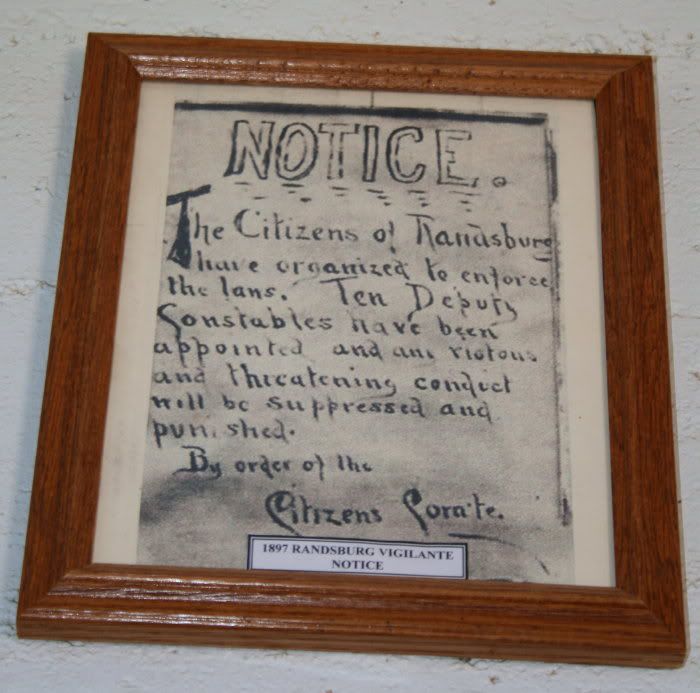 NOTICE.
The Citizens of Randsburg
have organized to enforce
the laws. Ten Deputy
Constables have been
appointed and any riotous
and threatening conduct
will be suppressed and
punished.
By order of the
Citizens Com'te.
1897 RANDSBURG VIGILANTE
NOTICE